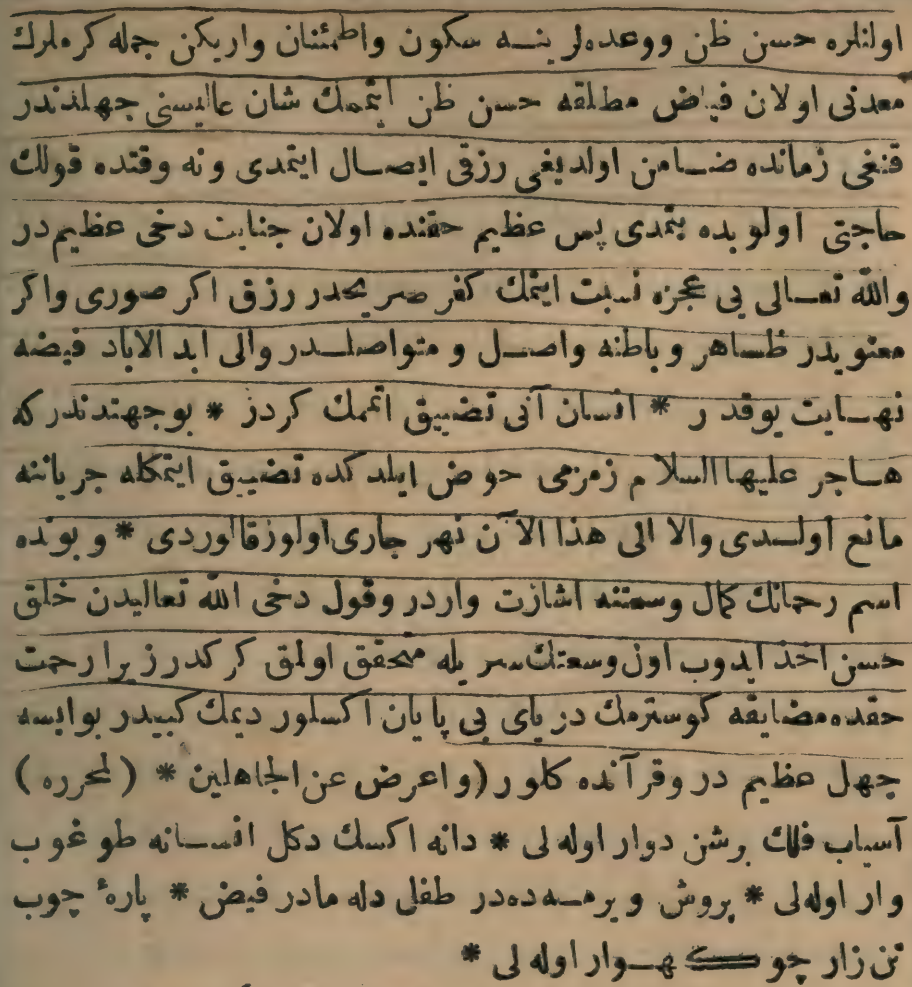 اولنلره حسن ظن ووعده‌لرینــه سكون واطمئنان واریكن جمله كرملرك
معدنی اولان فیاض مطلقه حسن ظن ایتممك شان عالیسنی جهلندندر
قنغی زمانده ضــامن اولدیغی رزقی ایصــال ایتمدی ونه وقتده قولك
حاجتی اولوبده بتمدی پس عظیم حقنده اولان جنایت دخی عظیم در
والله تعــالی یی عجزه نسبت ایتمك كفر صریحدر رزق اكر صوری واكر
معنویدر ظــاهر وباطنه واصــل و متواصلــدر والی ابد الاباد فیضه
نهــایت یوقدر * انسان آنی تضییق اتممك كردز * بوجهتدندركه
هــاجر علیهاالسلام زمزمی حوض ایلدكده تضییق ایتمكله جریاننه
مانع اولــدی والا الی هذا الآن نهر جاری اولوزقالوردی * وبونده
اسم رحمانك كمال وسعتنه اشارت واردر وقول دخی الله تعالیدن خلق
حسن اخذ ایدوب اول وسعتك سریله متحقق اولمق كركدر زیرا رحمت
حقده مضایقه كوسترمك دریای بی پایان اكسلور دیمك كبیدر بوایسه
جهل عظیم در وقرآنده كلور (واعرض عن الجاهلین * (لمحرره)
آسیاب فلك برشن دوار اوله لی * دانه اكسك دكل انســانه طوغوب
وار اوله لی * پروش ویرمــه ده در طفل دله مادر فیض * پارهٔ چوب
تن زار چو كهــوار اوله لی *